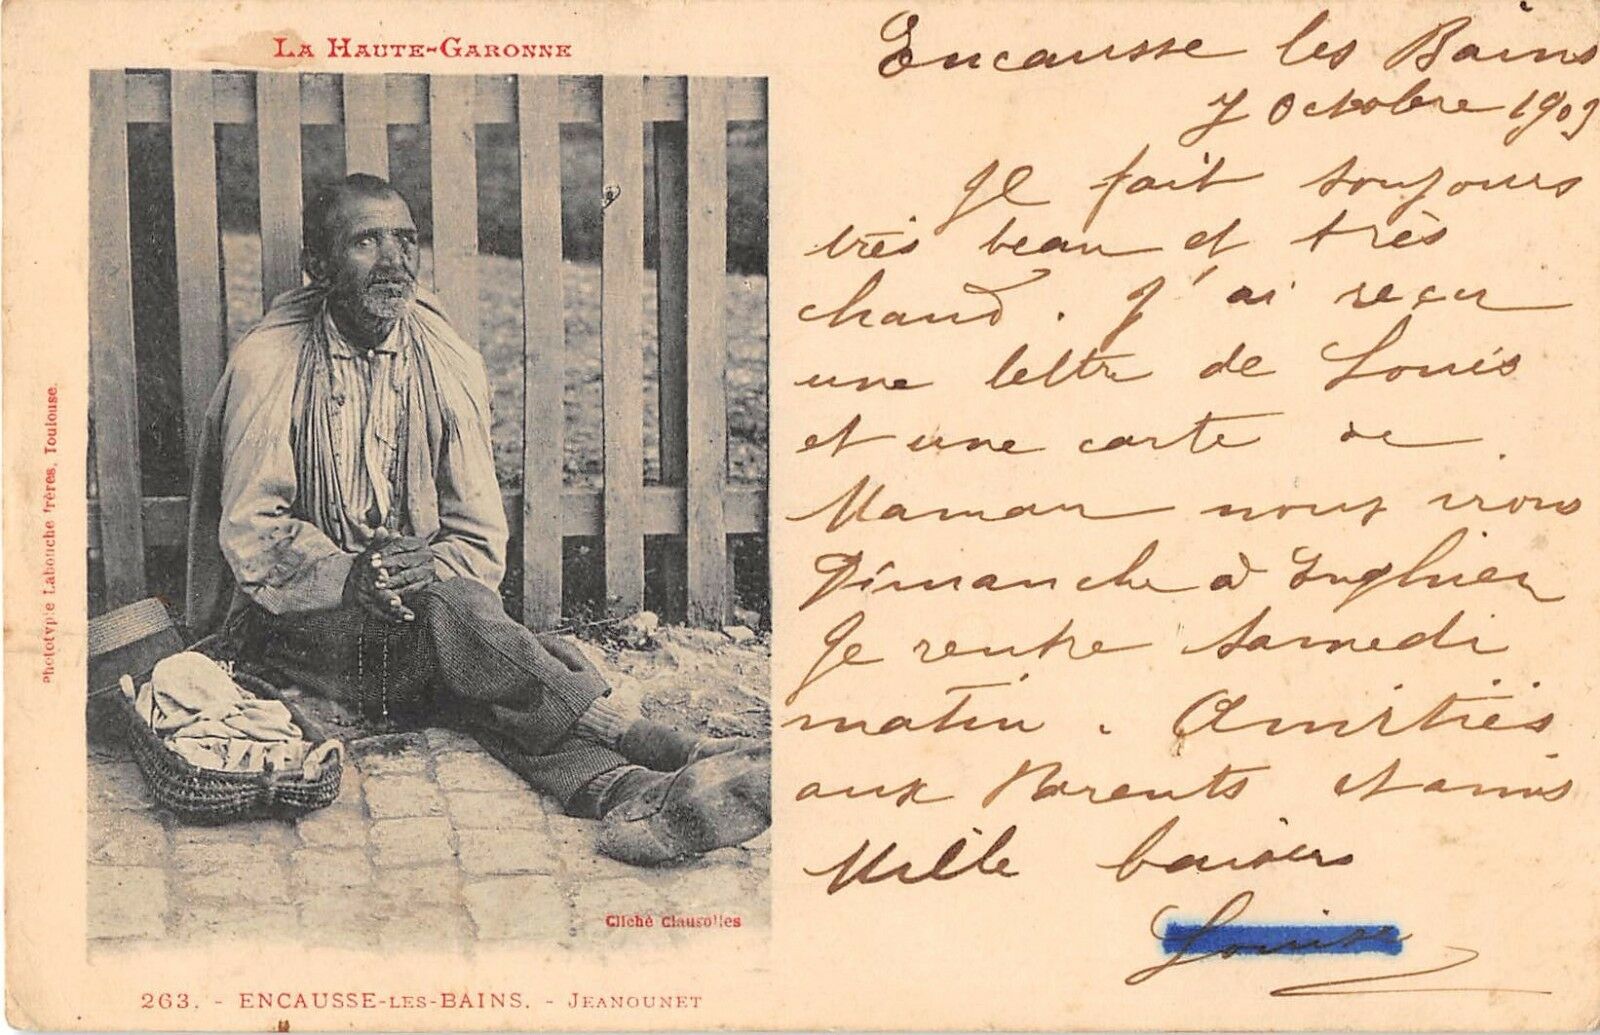 LA HAUTE-GARONNE
Phototypie Labouche frères, Toulouse.
Cliché Clausolles
263. - ENCAUSSE-LES-BAINS. - JEANOUNET
Encausse les Bains
7 Octobre 1903
Il fait toujours
très beau et très
chaud. J'ai reçu
une lettre de Louis
et une carte de
Maman nous irons
Dimanche à Enghien
Je rentre Samedi
matin. Amitiés
aux Parents et amis
Mille baisers
Louise